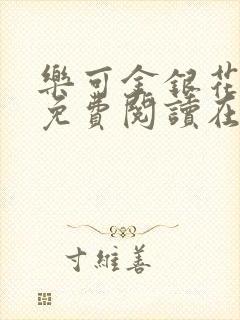 樂可金銀花
免費閱讀在
寸維善